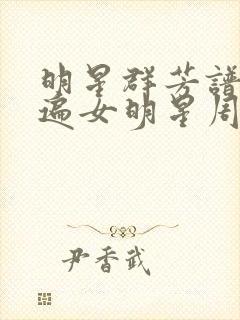 明星群芳譜
遍女明星周
尹香武